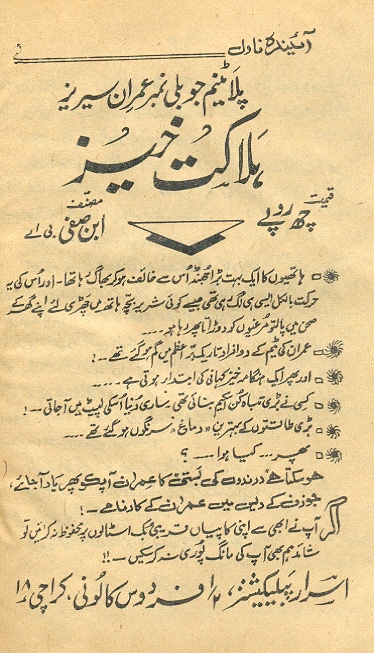 آئیندہ ناول
پلاٹینم جوبلی نمبر عمران سیریز
ہلاکت خیز
قیمت
چھ روپے
مصنف
ابن صفی بی اے
ہاتھیوں کا ایک بہت بڑا جھنڈ اُس سے خائف ہو کر بھاگ رہا تھا۔ اور اُس کی یہ
حرکت بالکل ایسی ہی لگ رہی تھی جیسے کوئی شریر بچہ ہاتھ میں چھڑی لئے اپنے گھر کے
صحن میں پالتو مرغیوں کو دوڑاتا پھر رہا ہو....
عمران کی ٹیم کے دو افراد تاریک برِّاعظم میں گم ہو گئے تھے --!
اور پھر ایک ہنگامہ خیز کہانی کی ابتدا ہوتی ہے....
کسی نے بڑی تباہ کن سکیم بنائی تھی ساری دنیا اُسکی لپیٹ میں آجاتی --!
بڑی طاقتوں کے بہترین "دماغ" سرنگوں ہو گئے تھے....
پھر.... کیا ہوا....؟
ہو سکتا ہے درندوں کی بستی کا عمران آپکو پھر یاد آ جائے،
جوزف کے دیس میں عمران کے کارنامے --!
اگر آپ نے ابھی سے اپنی کاپیاں قریبی بُک اسٹالوں پر محفوظ نہ کرائیں تو
شائد ہم بھی آپ کی مانگ پوری نہ کر سکیں --!!
اسرار پبلیکیشنز، ۲/ا فردوس کالونی، کراچی ۱۸